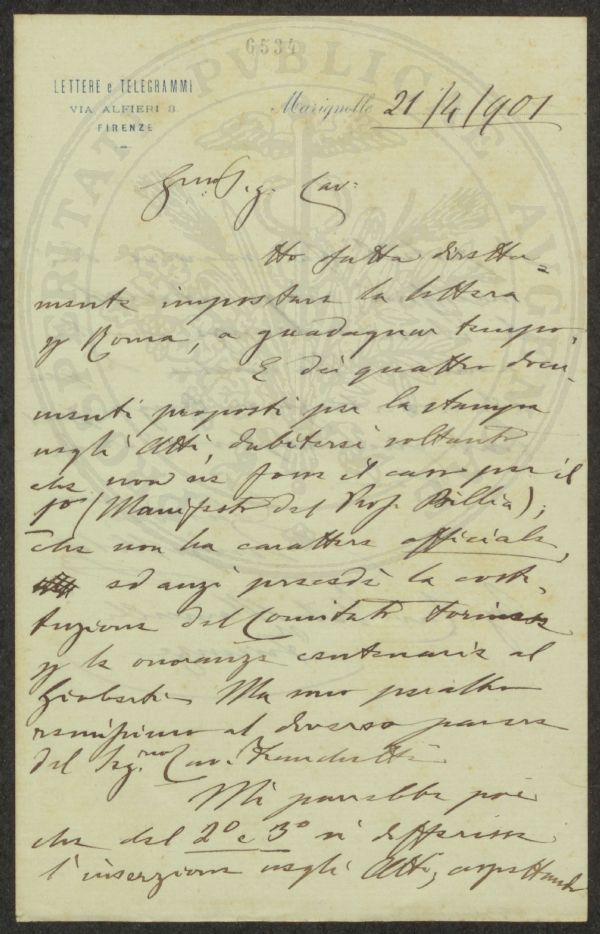 6534
LETTERE e TELEGRAMMI
VIA ALFIERI 3.
FIRENZE
Marignolle 21/4/901
Sig. Cav.
Ho fatta diretta=
mente impostare la lettera
p Roma, a guadagnar tempo.
E dei quattro docu-
menti proposti per la stampa
negli Atti, dubiterei soltanto
che non sia forse il caso per il
1º (Manifesto del Prof. Billia);
che non ha carattere officiale,
ed anzi precede la costi-
tuzione del Comitato torinese
p le onoranze centenarie al
Gioberti. Ma sono peraltro
al diverso parere
del Sig. Cav.
Mi parrebbe poi
che del 2º e 3º si differisse
l'inserzione negli Atti, aspettando